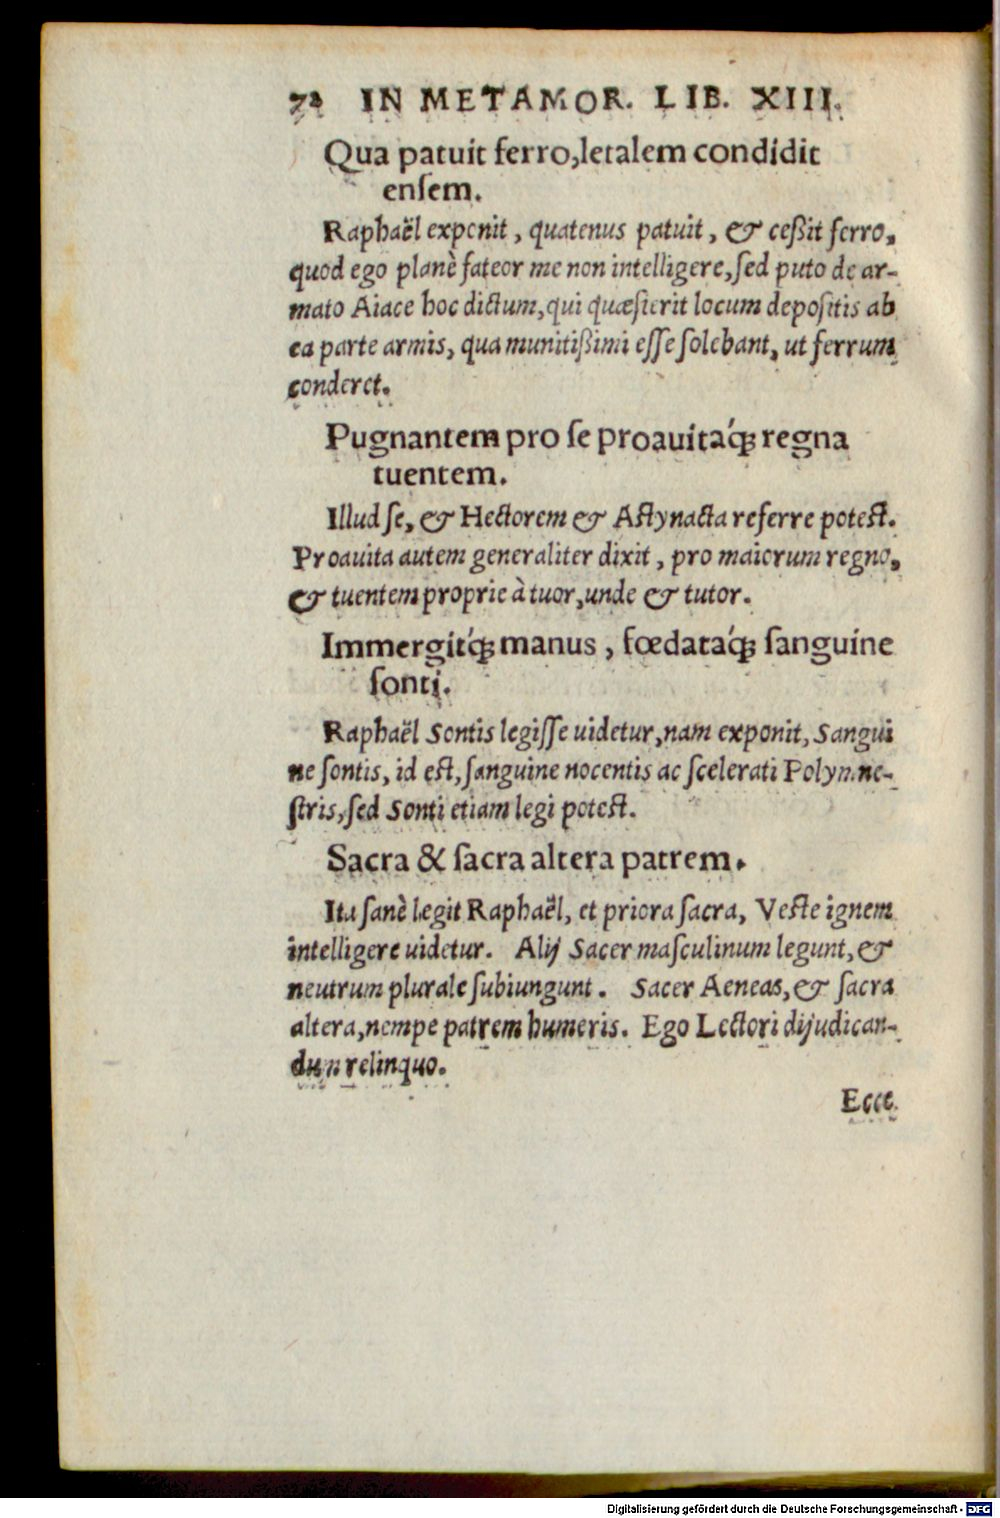 72 IN METAMOR. LIB. XIII.
Qua patuit ferro, letalem condidit
enſem.
Raphaël exponit, quatenus patuit, & ceßit ferro,
quod ego planè fateor me non intelligere, ſed puto de ar-
mato Aiace hoc dictum, qui quæſierit locum depoſitis ab
ea parte armis, qua munitißimi eſſe ſolebant, ut ferrum
conderet.
Pugnantem pro ſe proauitáq; regna
tuentem.
Illud ſe, & Hectorem & Aſtynacta referre poteſt.
Proauita autem generaliter dixit, pro maiorum regno,
& tuentem proprie à tuor, unde & tutor.
Immergitq́; manus, fœdatáq; ſanguine
ſonti.
Raphaël Sontis legiſſe uidetur, nam exponit, Sangui
ne ſontis, id eſt, ſanguine nocentis ac ſcelerati Polymne-
ſtris, ſed Sonti etiam legi poteſt.
Sacra & ſacra altera patrem.
Ita ſanè legit Raphaël, et priora ſacra, Veſte ignem
intelligere uidetur. Alij Sacer maſculinum legunt, &
neutrum plurale ſubiungunt. Sacer Aeneas, & ſacra
altera, nempe patrem humeris. Ego Lectori dijudican-
dum relinquo.
Ecce
Digitalisierung gefördert durch die Deutsche Forschungsgemeinschaft - DFG